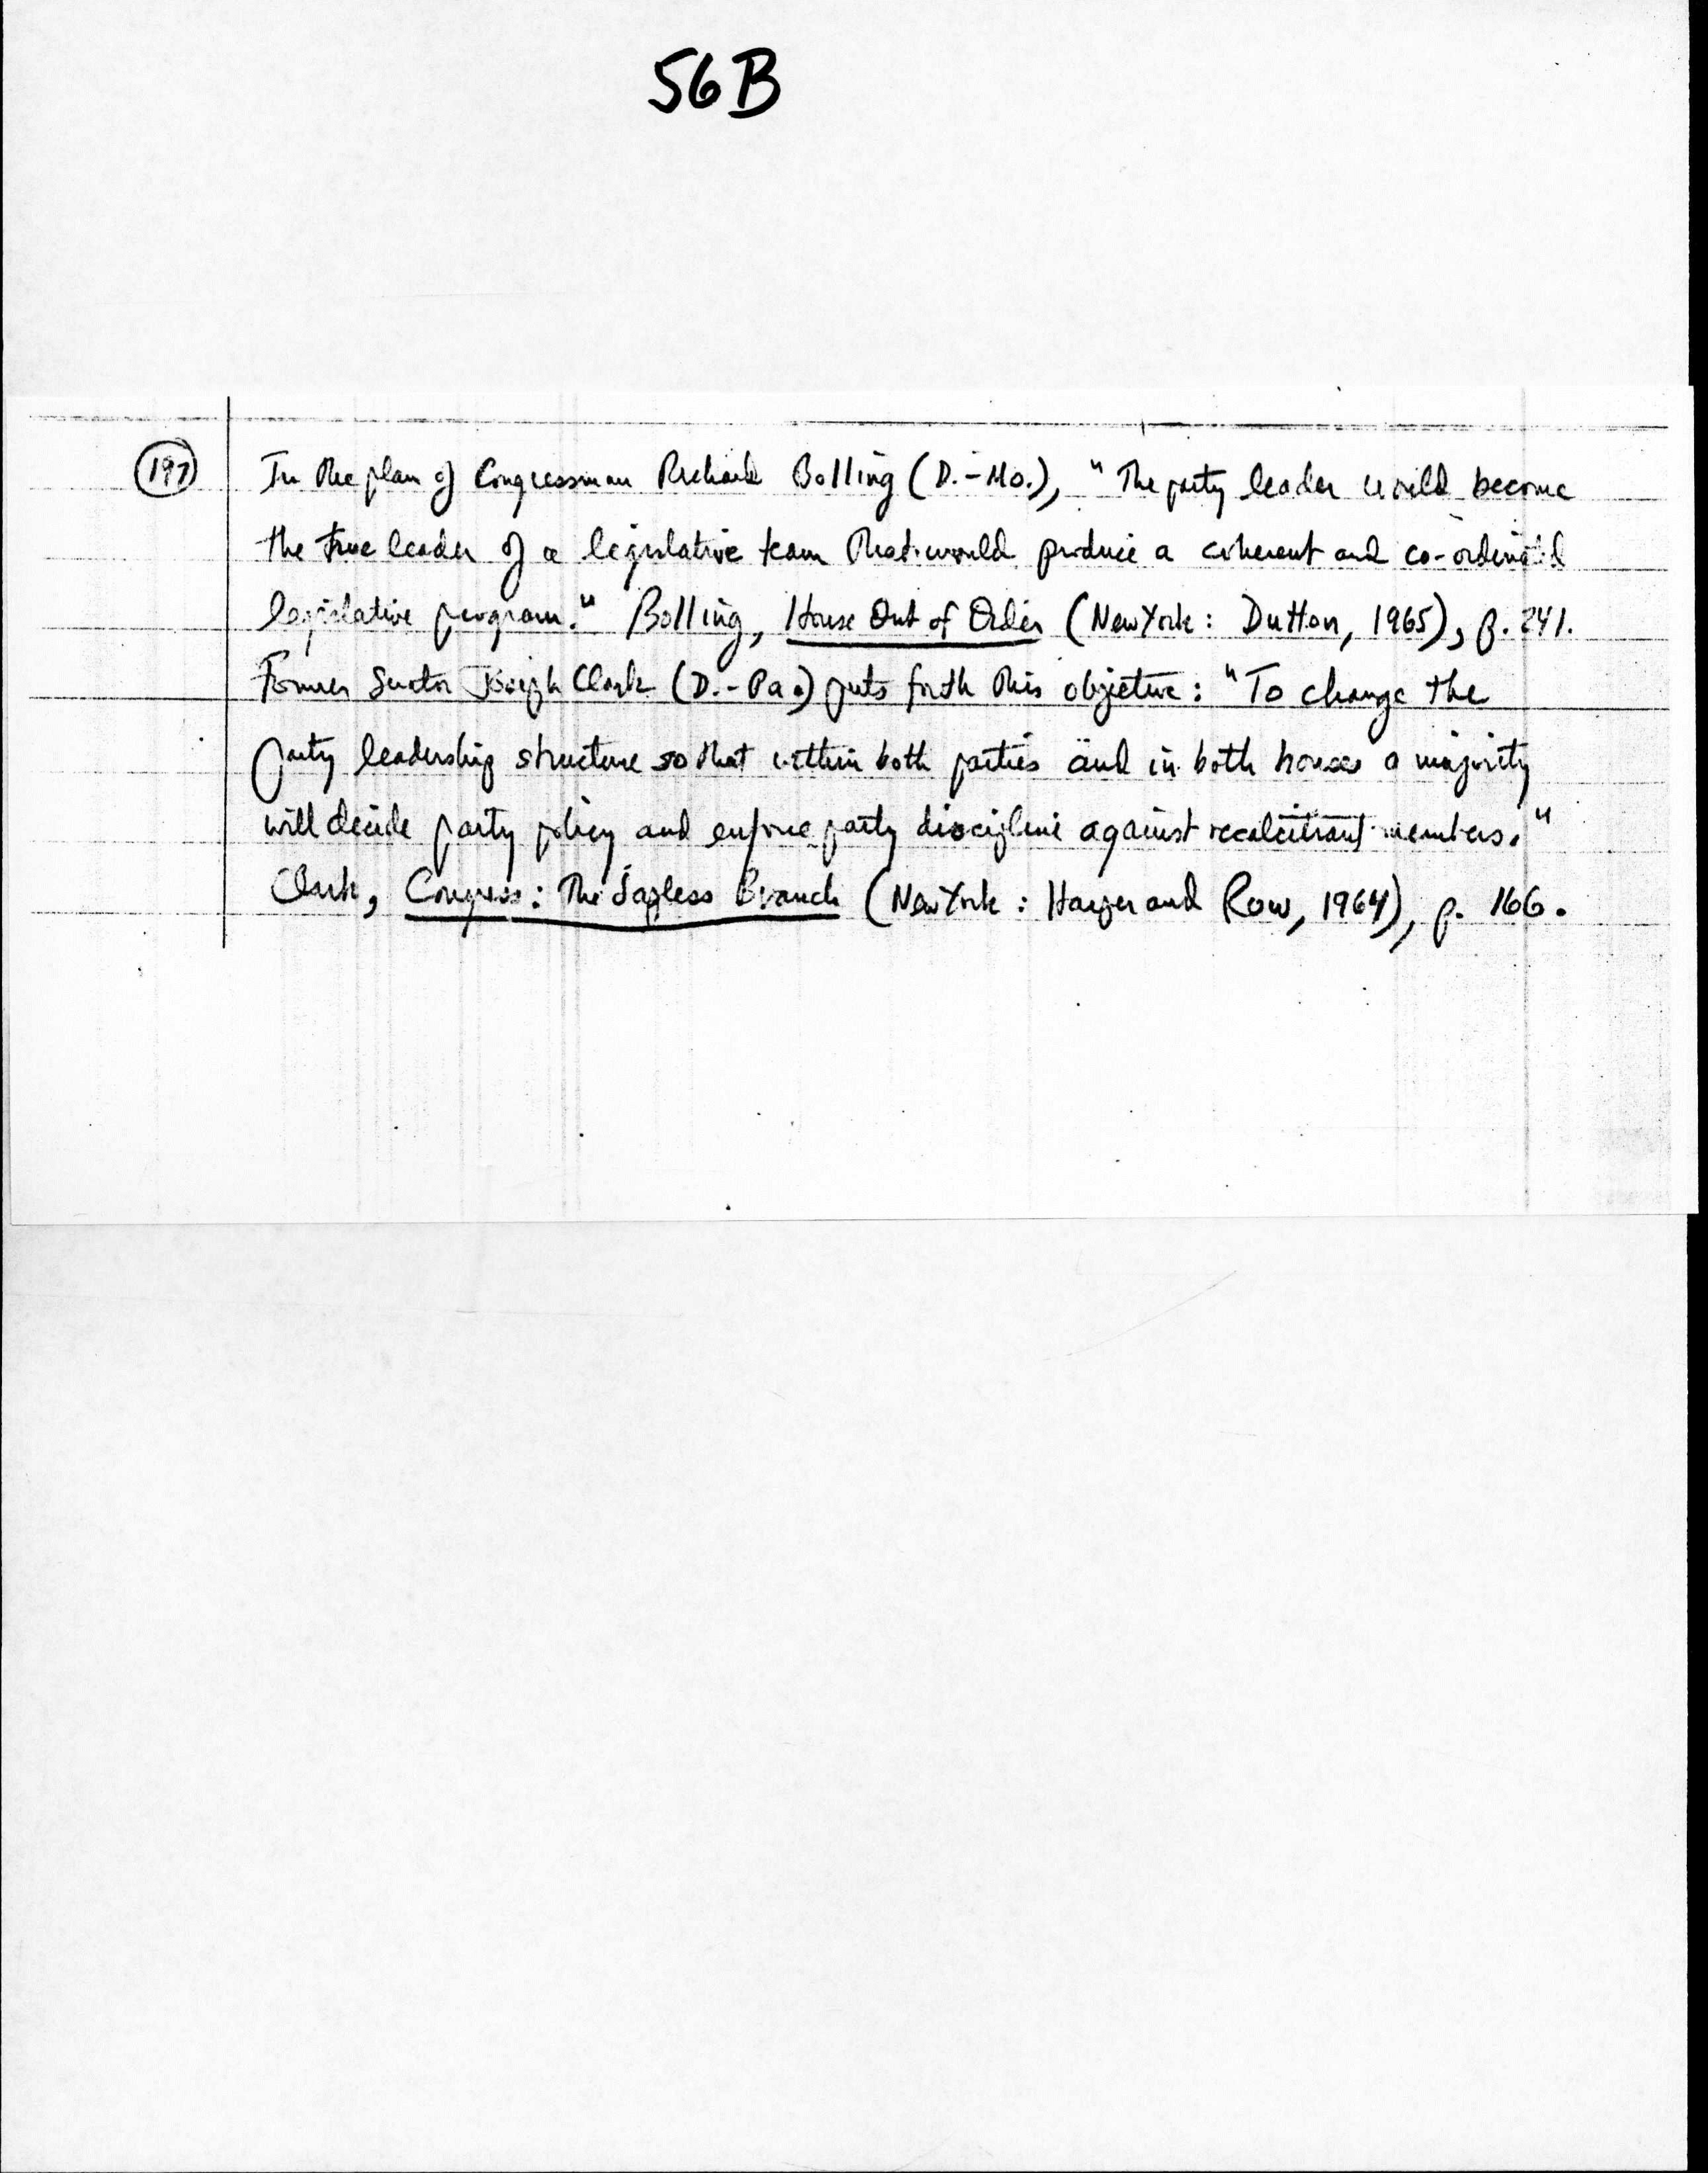 56B
197
In the plan of Congressman Richard Bolling (D.-Mo.), "The party leader would become
the true leader of a legislative team that would produce a coherent and co-ordinated
legislative program." Bolling, House Out of Order (New York: Dutton, 1965), p. 241.
Former Senator Joseph Clark (D.-Pa.) puts forth this objective: "To change the
party leadership structure so that within both parties and in both houses a majority
will decide party policy and enforce party discipline against recalcitrant members."
Clark, Congress: The Sapless Branch (New York: Harper and Row, 1964), p. 166.